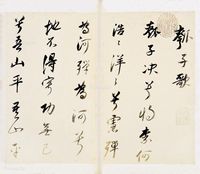 瓠子歌
瓠子決兮將奈何
浩〻洋〻兮慮殫
為河殫為河兮
地不得寧功無已
兮吾山平吾山平